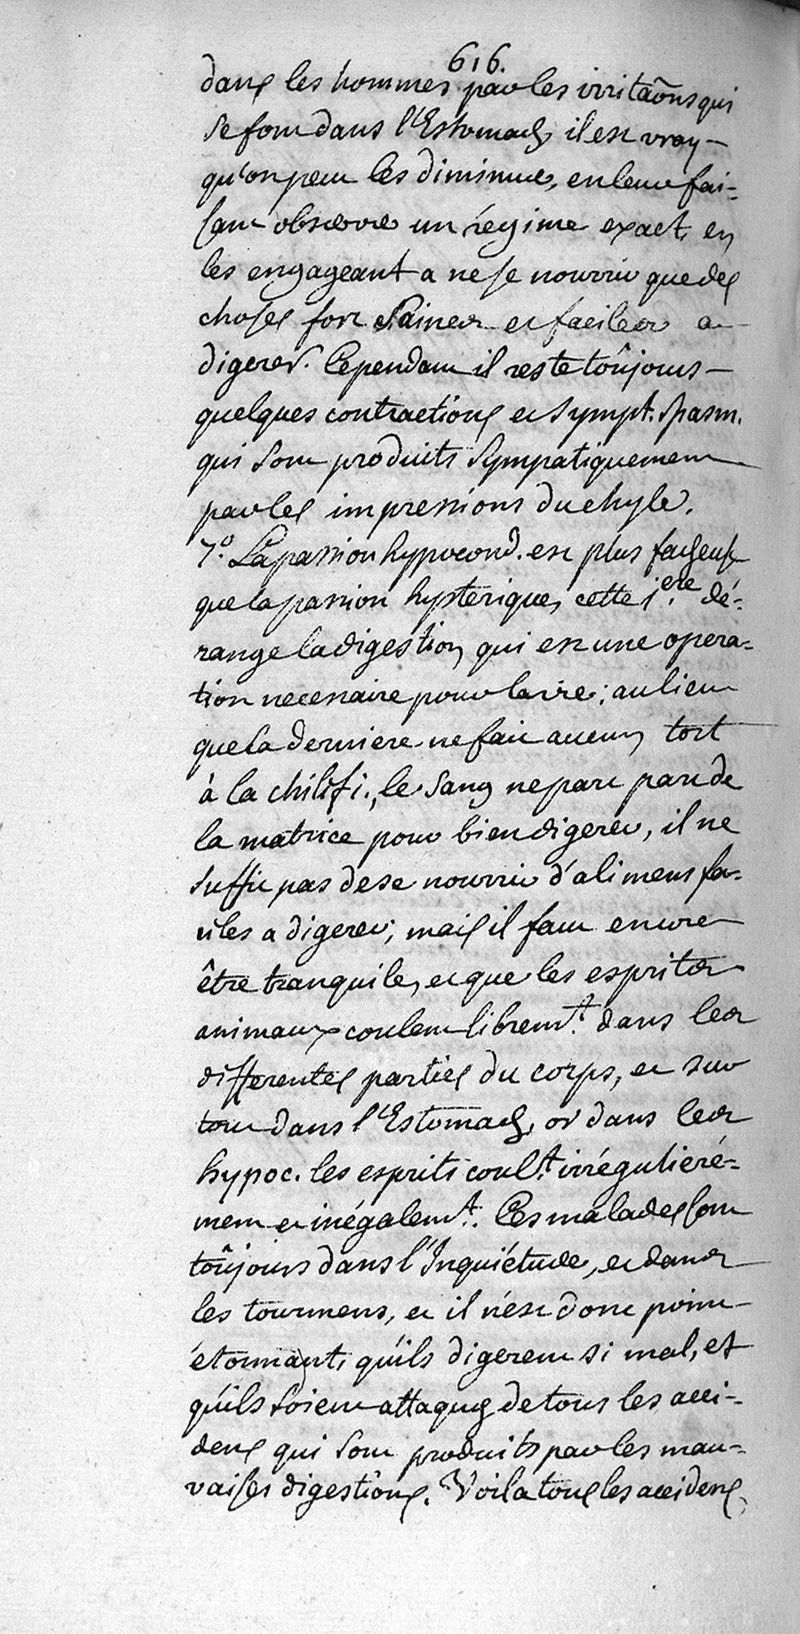 616.
dans les hommes par les irritaõns qui
se font dans l'Estomach, il est vray
qu'on peut les diminuer, en leur fai-
sant observer un régime exact, en
les engageant a ne se nourrir que des
choses fort saines et faciles a
digerer. Cependant il reste toûjours
quelques contractions et sympt. spasm.
qui sont produits sympatiquement
par les impressions du chyle.
7.° La passion hypocond. est plus facheuse
que la passion hysterique, cette 1.ere dé-
range la digestion, qui est une opera-
tion necessaire pour la vie; au lieu
que la derniere ne fait aucun tort
à la chilifi., le sang ne part pas de
la matrice pour bien digerer, il ne
suffit pas de se nourrir d'alimens fa-
ciles a digerer; mais il faut encore
être tranquile, et que les esprits
animaux coulent librem.t dans les
differentes parties du corps, et sur
tout dans l'Estomach, or dans les
hypoc. les esprits coul.t irréguliéré-
ment et inégalem.t. Ces malades sont
toûjours dans l'Inquiétude, et dans
les tourmens, et il n'est donc point
étonnant, qu'ils digerent si mal, et
qu'ils soient attaqués de tous les acci-
dens qui sont produits par les mau-
vaises digestions. Voila tous les accidens